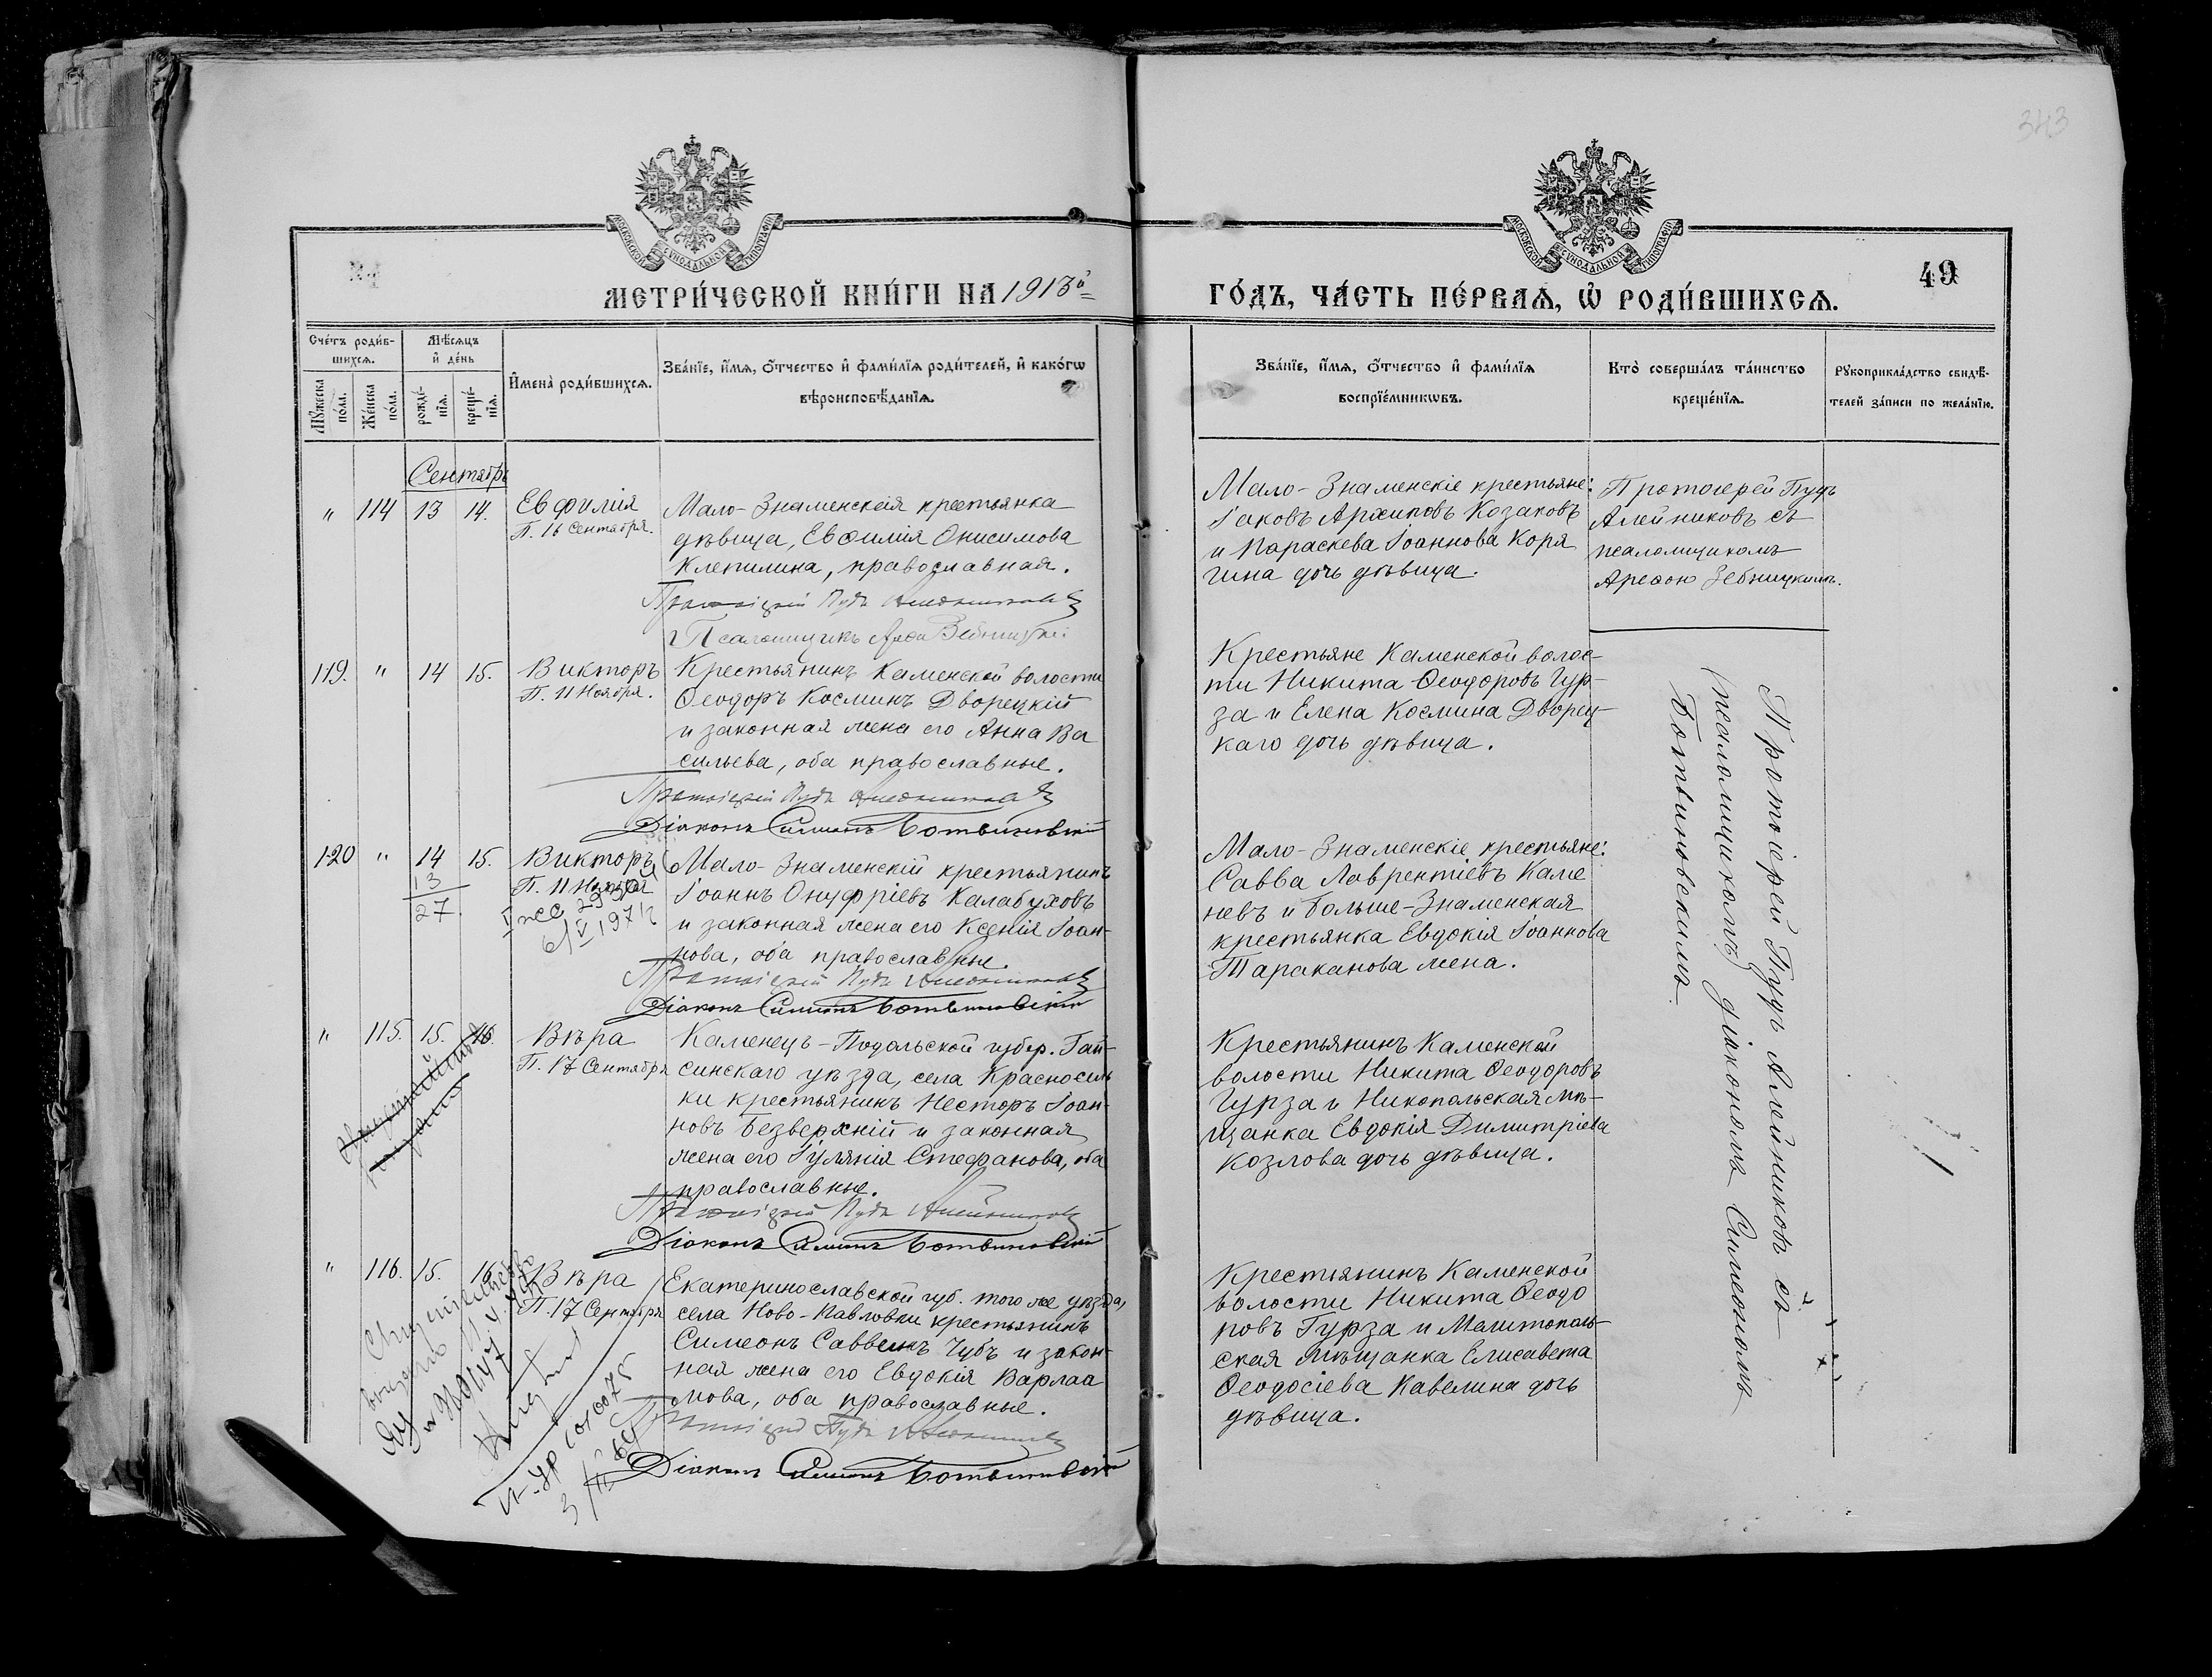 343
МОСКОВСКОЙ СѴНОДАЛЬНОЙ ТИПОГРАФІИ
МОСКОВСКОЙ СѴНОДАЛЬНОЙ ТИПОГРАФІИ
49
МЕТРИ́ЧЕСКОЙ КНИ́ГИ НА 1913й
ГО́ДЪ, ЧА́СТЬ ПЕ́РВАѦ, Ѡ҆ РОДИ́ВШИХСѦ.
Сче́тъ роди́в-
шихсѧ.
Мѣ́сѧцъ
и҆ де́нь
Мꙋ́жеска
по́ла.
Же́нска
по́ла.
рожде́-
нїѧ.
креще́-
нїѧ.
И҆мена̀ роди́вшихсѧ.
Зва́нїе, и҆́мѧ, ѻ҆́тчество и҆ фами́лїѧ роди́телей, и҆ како́гѡ
вѣроисповѣ́данїѧ.
Зва́нїе, и҆́мѧ, ѻ҆́тчество и҆ фами́лїѧ
воспрїе́мникѡвъ.
Кто̀ соверша́лъ та́инство
креще́нїѧ.
Рꙋкоприкла́дство свидѣ́-
телей за́писи по жела́нїю.
Сентябрь
" 114 13 14.
Евфимія
П. 16 Сентября.
Мало-Знаменская крестьянка
дѣвица, Евѳимія Онисимова
Клепилина, православная.
Протоіерей Пудъ Алейниковъ
Псаломщикъ
Мало-Знаменскіе крестьяне:
Іаковъ Архиповъ Козаковъ
и Параскева Іоаннова Коря
гина дочь дѣвица.
Протоіерей Пудъ
Алейниковъ съ
псаломщикомъ
119. " 14 15.
Викторъ
П. 11 Ноября.
Крестьянинъ Каменской волости
Ѳеодоръ Косминъ Дворецкій
и законная жена его Анна Ва
сильева, оба православные.
Протоіерей Пудъ Алейниковъ
Діаконъ Симеонъ Ботвиновскій
Крестьяне Каменской волос-
ти Никита Ѳеодоровъ Гур-
за и Елена Космина Дворец-
каго дочь дѣвица.
120 " 14 15.
13
27
Викторъ
П. 11 Ноября
Мало-Знаменскій крестьянинъ
Іоаннъ Онуфріевъ Калабуховъ
и законная жена его Ксенія Іоан-
нова, оба православные.
Протоіерей Пудъ Алейниковъ
Діаконъ Симеонъ Ботвиновскій
Мало-Знаменскіе крестьяне:
Савва Лаврентіевъ Каме
невъ и Больше-Знаменская
крестьянка Евдокія Іоаннова
Тараканова жена.
" 115. 15. 16.
Вѣра
П. 17 Сентября
Каменецъ-Подольской губер. Гай-
синскаго уѣзда, села Красносел
ки крестьянинъ Несторъ Іоан-
новъ Безверхній и законная
жена его Іуліянія Стефанова, оба
православные.
Протоіерей Пудъ Алейниковъ
Діаконъ Симеонъ Ботвиновскій
Крестьянинъ Каменской
волости Никита Ѳеодоровъ
Гурза и Никопольская мѣ-
щанка Евдокія Димитріева
Козлова дочь дѣвица.
" 116. 15. 16.
Вѣра
П. 17 Сентября
Екатеринославской губ. того же уѣзда,
села Ново-Павловки крестьянинъ
Симеонъ Саввинъ Чубъ и закон-
ная жена его Евдокія Варлаа
мова, оба православные.
Протоіерей Пудъ Алейниковъ
Діаконъ Симеонъ Ботвиновскій
Крестьянинъ Каменской
волости Никита Ѳеодо
ровъ Гурза и Мелитополь-
ская мѣщанка Елисавета
Ѳеодосіева Кавелина дочь
дѣвица.
Протоіерей Пудъ Алейниковъ съ
псаломщикомъ діакономъ Симеономъ
Ботвиновскимъ